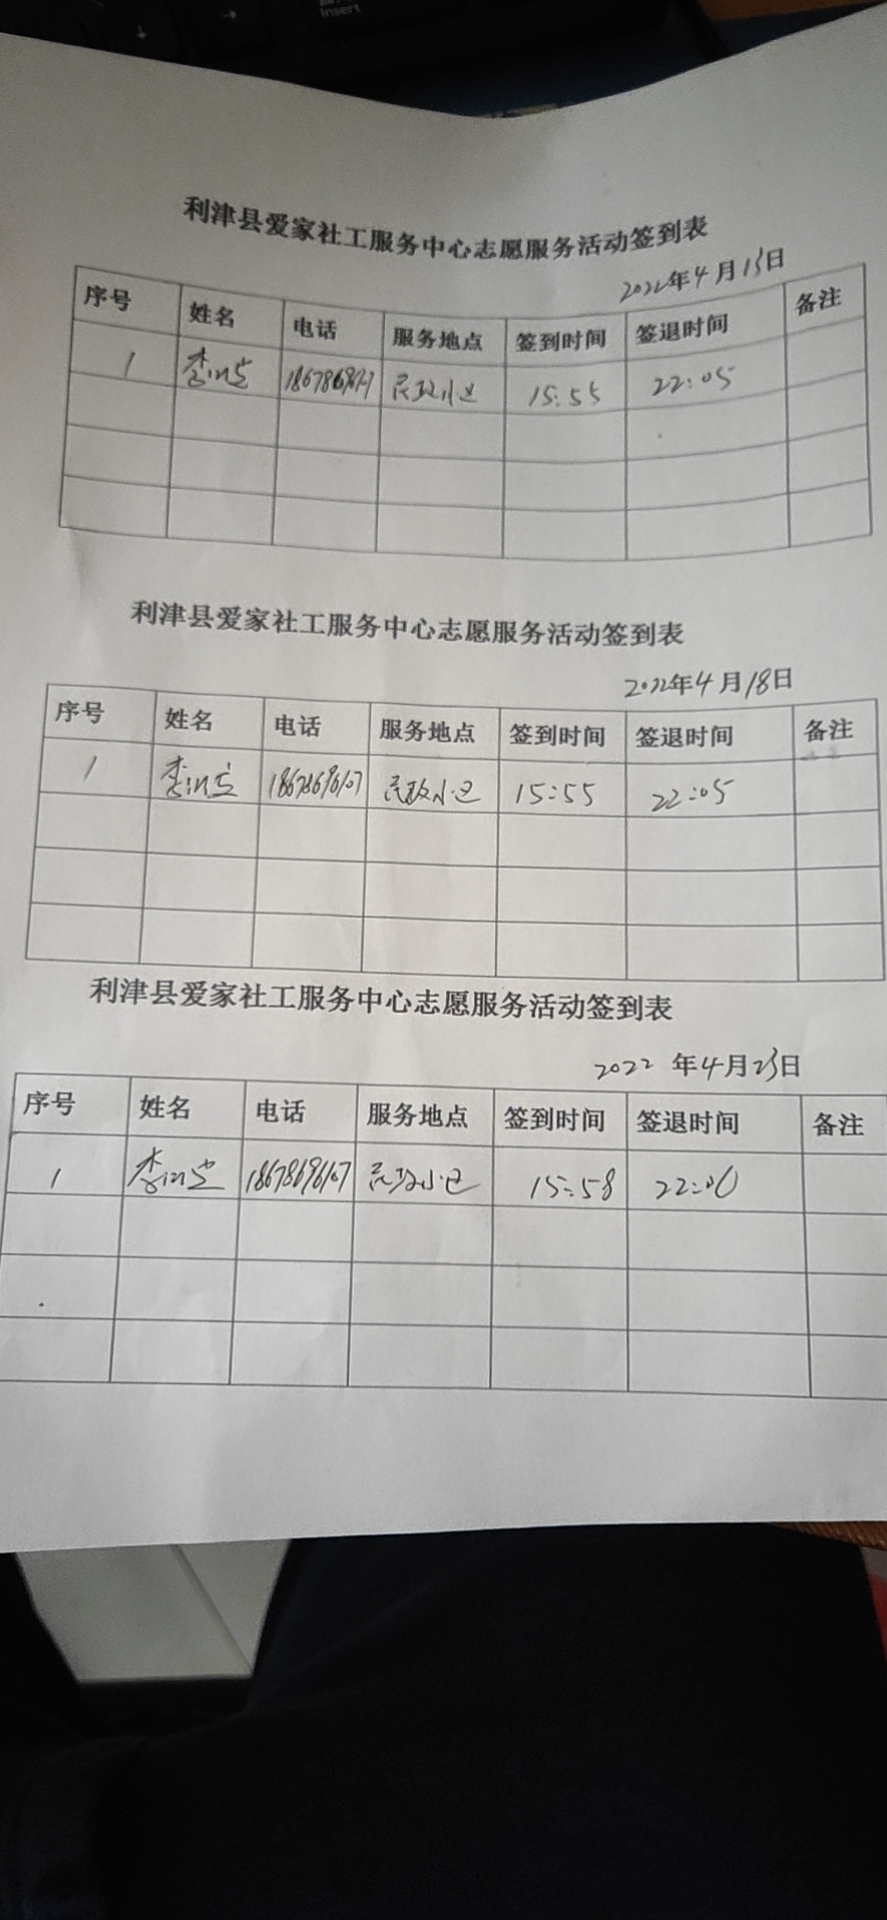 Insert
利津县爱家社工服务中心志愿服务活动签到表
2022年4月13日
序号 姓名 电话 服务地点 签到时间 签退时间 备注
1 李 18678696107 民政小区 15:55 22:05
利津县爱家社工服务中心志愿服务活动签到表
2022年4月18日
序号 姓名 电话 服务地点 签到时间 签退时间 备注
1 李 18678696107 民政小区 15:55 22:05
利津县爱家社工服务中心志愿服务活动签到表
2022年4月23日
序号 姓名 电话 服务地点 签到时间 签退时间 备注
1 李 18678696107 民政小区 15:58 22:06